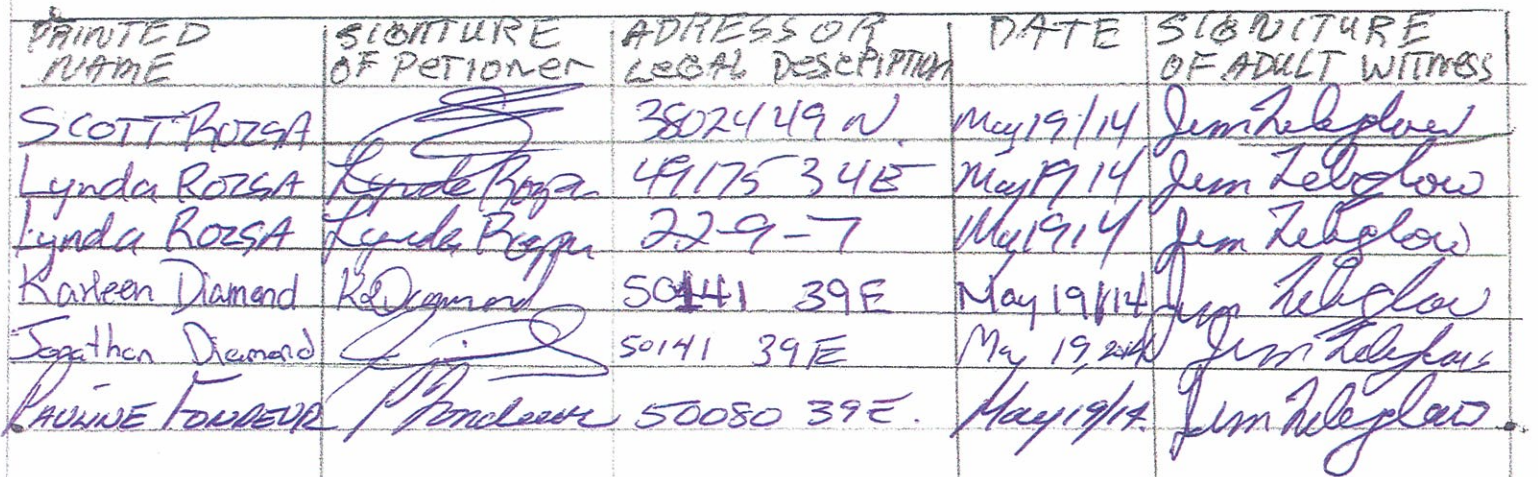 PRINTED NAME SIGNTTURE OF PETIONER ADRESS OR LEGAL DESCRIPTION DATE SIGNITURE OF ADULT WITTNESS
SCOTT ROZSA 38024 49 N. May 19/14 Jim
Lynda ROZSA Lynda Rozsa 49175 34E May 19/14 Jim
Lynda ROZSA Lynda Rozsa 22-9-7 May 19 14 Jim
Karleen Diamond KDiamond 50141 39E May 19/14 Jim
Jonathan Diamond 50141 39E May 19, 2014 Jim
PAULINE FONDEUR PFondeur 50080 39E. May 19/14 Jim